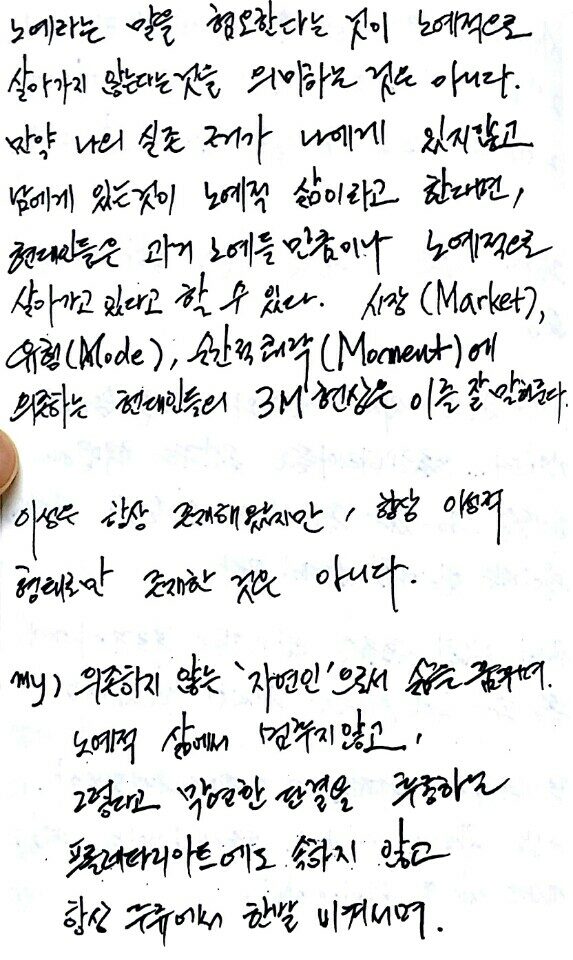 노예라는 말을 혐오한다는 것이 노예적으로
살아가지 않는다는것을 의미하는 것은 아니다.
만약 나의 실존 근거가 나에게 있지않고
남에게 있는것이 노예적 삶이라고 한다면,
현대인들은 과거 노예들 만큼이나 노예적으로
살아가고 있다고 할 수 있다. 시장 (Market),
유행(Mode), 순간적쾌락(Moment)에
의존하는 현대인들의 3M 현상은 이를 잘 말해준다.
이성은 항상 존재해왔지만, 항상 이성적
형태로만 존재한 것은 아니다.
의존하지 않는 '자연인'으로서 삶을 꿈꾸며.
노예적 삶에서 멈추지않고,
그렇다고 막연한 단결을 하는
프롤레타리아트에도 속하지 않고
항상 주류에서 한발 비켜서며.